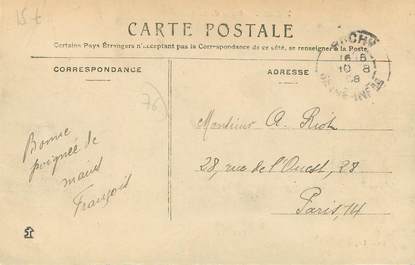 15 €
CARTE POSTALE
Certains Pays Étrangers n'acceptant pas la Correspondance de ce côté, se renseigner à la Poste.
CORRESPONDANCE
ADRESSE
16 8
10 8
08
76
Monsieur A. Riot
28, rue de l'Ouest, 28
Paris, 14
Bonne
poignée de
mains
François